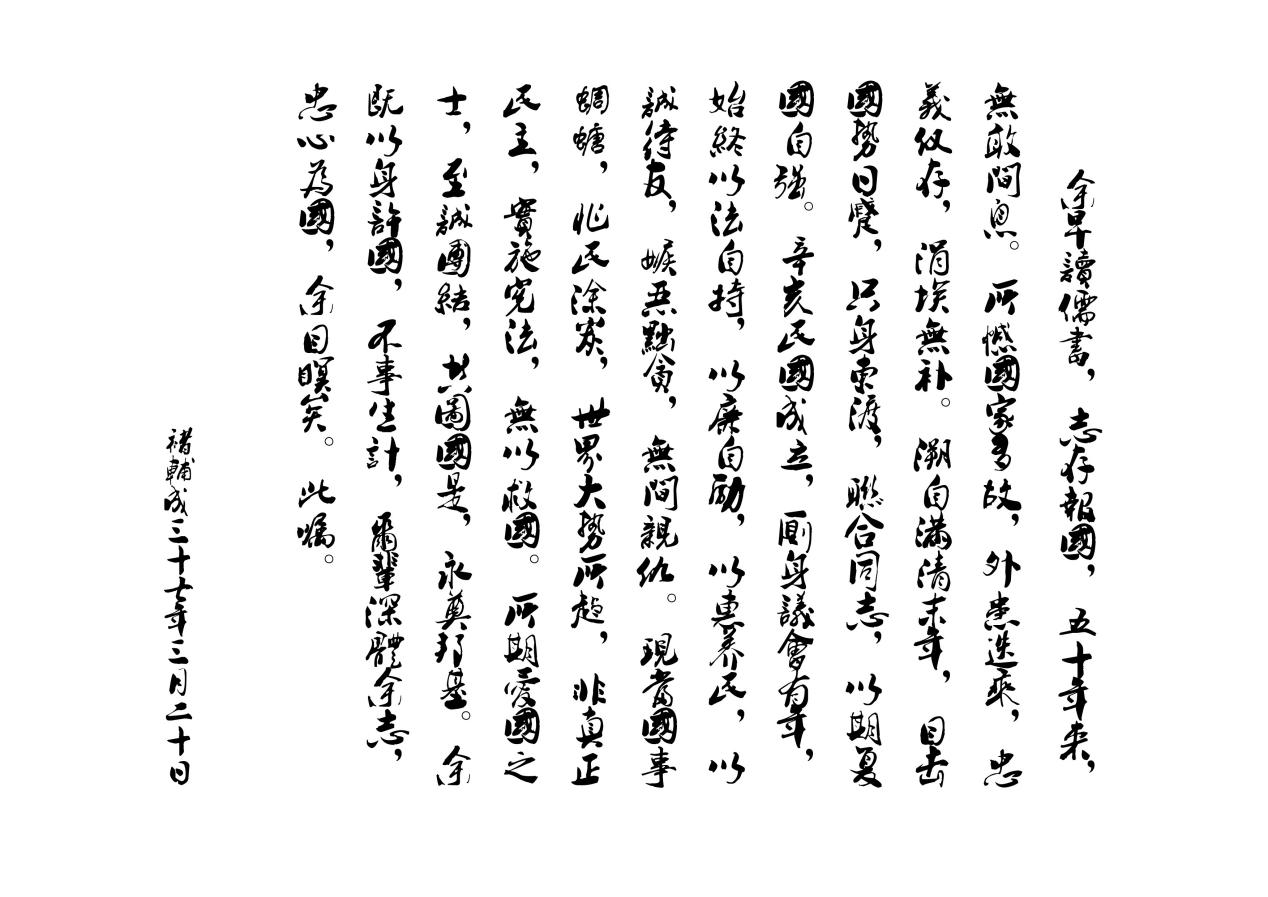 余早讀儒書，志存報國，五十年来，
無敢間息。所憾國家多故，外患迭乘，忠
義仅存，涓埃無补。溯自滿清末年，目击
國势日蹙，只身東渡，聯合同志，以期夏
國自强。辛亥民國成立，厠身議會有年，
始終以法自持，以廉自励，以惠养民，以
誠待友，嫉恶黜贪，無間親仇。現當國事
蜩螗，兆民涂炭，世界大势所趋，非真正
民主，實施宪法，無以救國。所期愛國之
士，至誠團結，共圖國是，永奠邦基。余
既以身許國，不事生計，爾輩深體余志，
忠心為國，余目瞑矣。此嘱。
褚輔成三十七年三月二十日